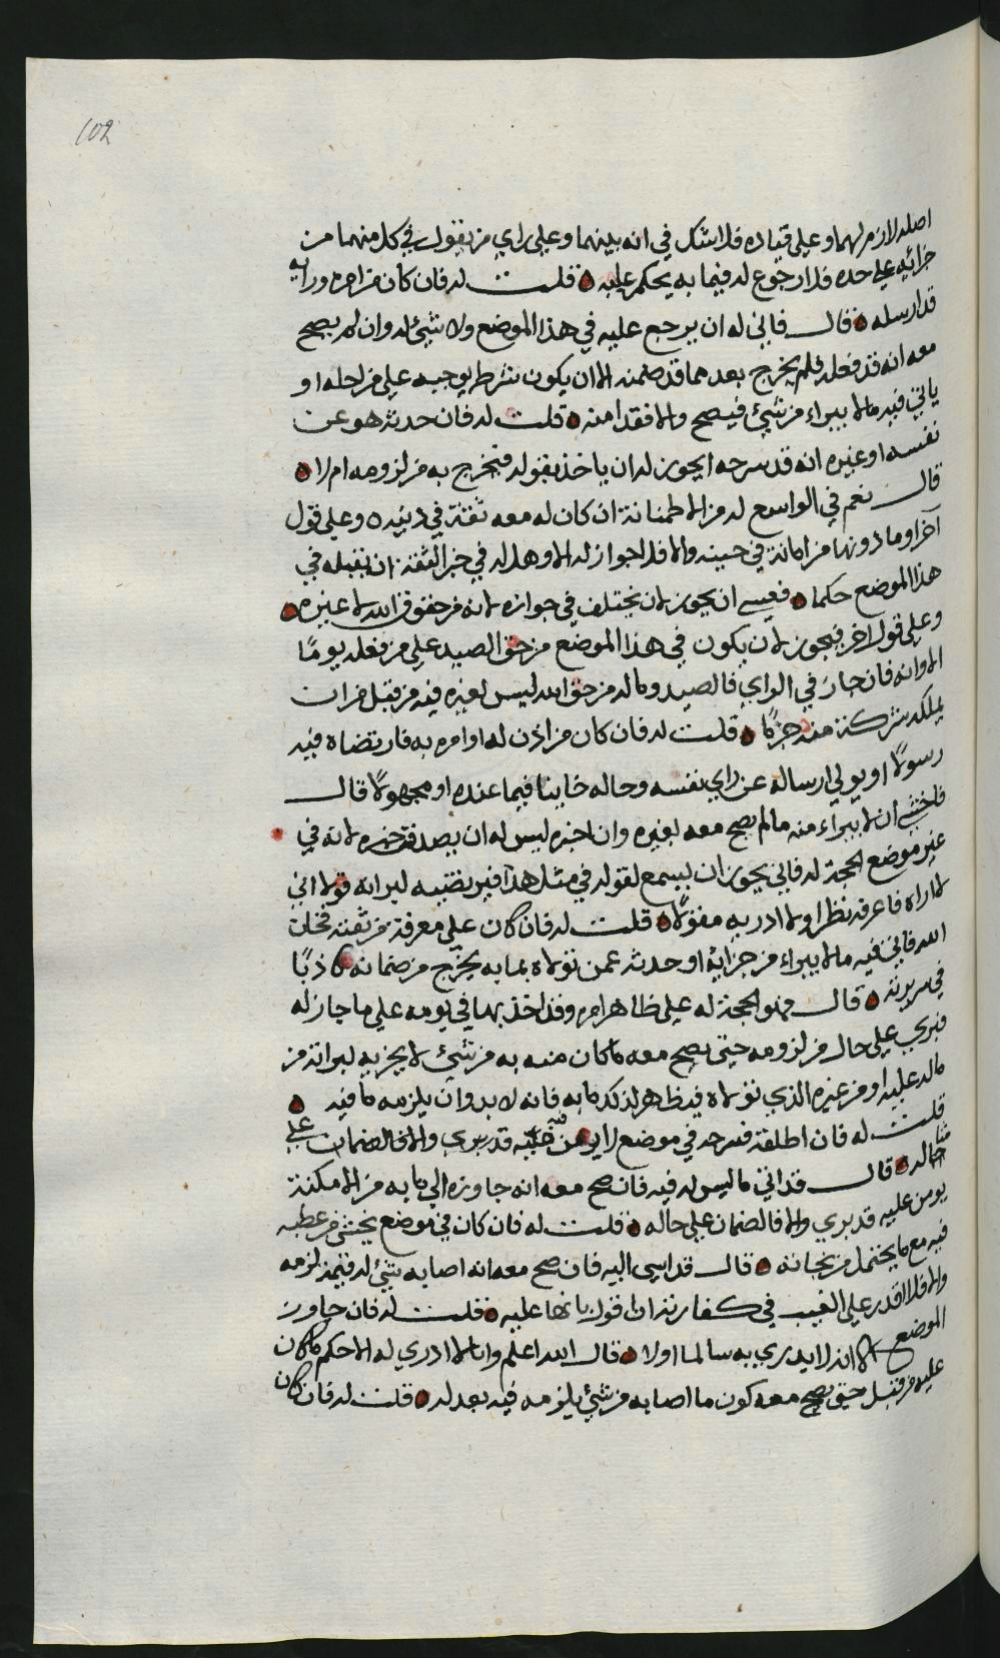 102
اصله لازم لهما وعلى قياده فلا شك في انه بينهما وعلى راي من يقول في كل منهما من
جزائه على حده فلا رجوع له فيما به يحكم عليه قلت له فان كان من امره ورايه
قد ارسله قال فاني له ان يرجع عليه في هذا الموضع ولا شيء له وان لم يصح
معه انه قد فعله فلم يخرج بعد مما قد ضمنه الا ان يكون شرط يوجبه على من احله او
ياتي فيه مالا يبراء من شيء فيصح والا فقد امنه قلت له فان حدثه هو عن
نفسه او غيره انه قد سرحه ايجوز له ان ياخذ بقوله فيخرج به من لزومه ام لا
قال نعم في الواسع له من الاطمئنانة ان كان له معه ثقة في دينه وعلى قول
آخر وما دونها من امانة في حينه والا فلا جواز له الا وهل له في خبر الثقة ان يقبله في
هذا الموضع حكما فعسى ان يجوز لان يختلف في جوازه لانه من حقوق الله لا غيره
وعلى قول اخر فيجوز لان يكون في هذا الموضع من حق الصيد على من فعله يوما
الا وانه فان جاز في الراي فالصيد وماله من حق الله ليس لغيره فيه من قبل من ان
يملكه شركة منه جزما قلت له فان كان من اذن له او امره به فارتضاه فيه
رسولا او يولي ارساله عن راي نفسه وحاله خاينا فيما عنده او مجهولا قال
فاخشى ان لا يبراء منه مالم يصح معه لغيره وان اخبره ليس له ان يصدقه في خبره لانه في
غير موضع الحجة له فاني يجوز ان يسمع لقوله في مثل هذا فيرتضيه ليراه قولا اني
لا اراه فاعرفه نظرا ولا ادريه مقولا قلت له فان كان على معرفة من ثقته فخان
الله فاتى فيه مالا يبراء من جزائه او حدثه عمن تولاه بما به يخرج من ضمانه كاذبا
في سريرته قال فهو الحجة له على ظاهر امره وقد اخذ بها في يومه على ما جاز له
فبري على حال من لزومه حتى يصح معه ما كان منه به من شيء لا يجزيه لبراته من
ماله عليه او من غيره الذي تولاه فيه ظاهر لذلك ما به فانه لا بد وان يلزمه ما فيه
قلت له فان اطلقه فسرحه في موضع قد بري والا فالضمان على
حاله قال قد اتى ما ليس له فيه فان صح معه انه جاوزه الى ما به من الامكنة
يومن عليه قد بري والا فالضمان على حاله قلت له فان كان في موضع يخشى من عطبه
فيه مع ما يحتمل من نجاته قال قد اسى اليه فان صح معه انه اصابه شيء له قيمة لزمه
والا فلا اقدر على الغيب في كفارته ان اقول بانها عليه قلت له فان جاوز
الموضع الا انه لا يدري به سالما اولا قال الله اعلم وانا لا ادري له الا حكم ما كان
عليه من قبل حتى يصح معه كون ما اصابه من شيء يلزمه فيه بعد له قلت له فان كان